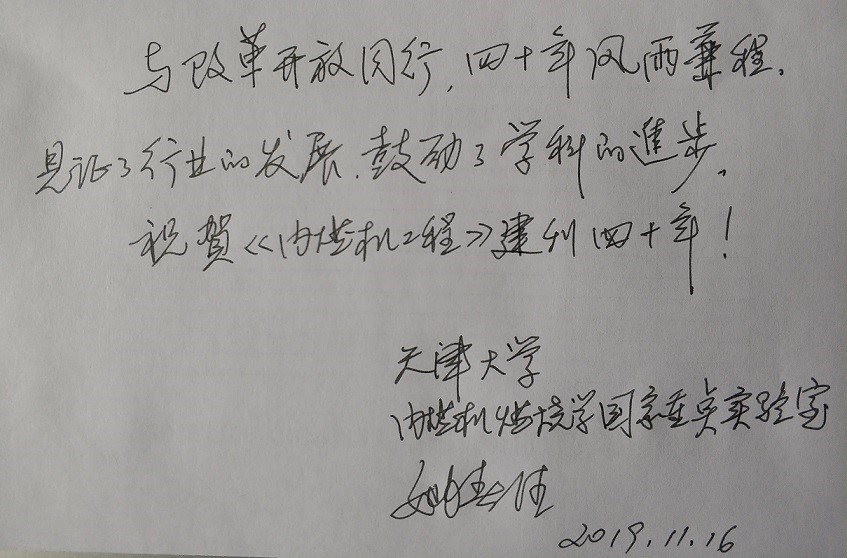 与改革开放同行,四十年风雨兼程.
见证了行业的发展.鼓动了学科的進步.
祝賀《内燃机工程》建刊四十年!
天津大学
内燃机燃烧学国家重点实验室
姚春德
2019.11.16